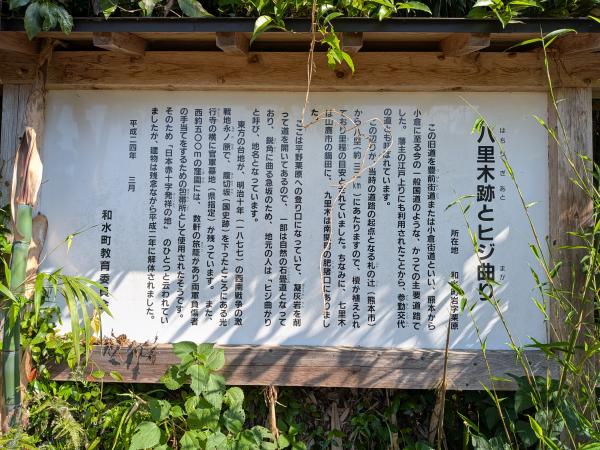 はちりぎあと　まが
八里木跡とヒジ曲り
所在地　和水町岩字栗原
この旧道を豊前街道または小倉街道といい、熊本から
小倉に至る今の一般国道のような、かつての主要道路で
した。藩主の江戸上りにも利用されたことから、参勤交代
の道とも呼ばれています。
この辺りが、当時の道路の起点となる札の辻（熊本市）
から八里（約三二km）にあたりますので、榎が植えられ
ており里程の目安とされていました。ちなみに、七里木
は山鹿市の鍋田に、九里木は南関町の肥猪口にありまし
た。
ここは平野栗原への登り口になっていて、凝灰岩を削
って道を開いてあるので、一部は自然の石畳道となって
おり、鋭角に曲る急坂のため、地元の人は「ヒジ曲がり
と呼び、地名となっています。
東方の台地が、明治十年（一八七七）の西南戦争の激
戦地永ノ原で、腹切坂（国史跡）を下ったところにある光
行寺の横に官軍墓地（県指定）が残っています。また、
西約五〇〇mの窪園には、数軒の旅籠があり両軍負傷者
の手当てをするための包帯所として使用されたそうです。
そのため「日本赤十字発祥の地」のひとつと云われてい
ましたが、建物は残念ながら平成二年に解体されました。
平成二四年　三月
和水町教育委